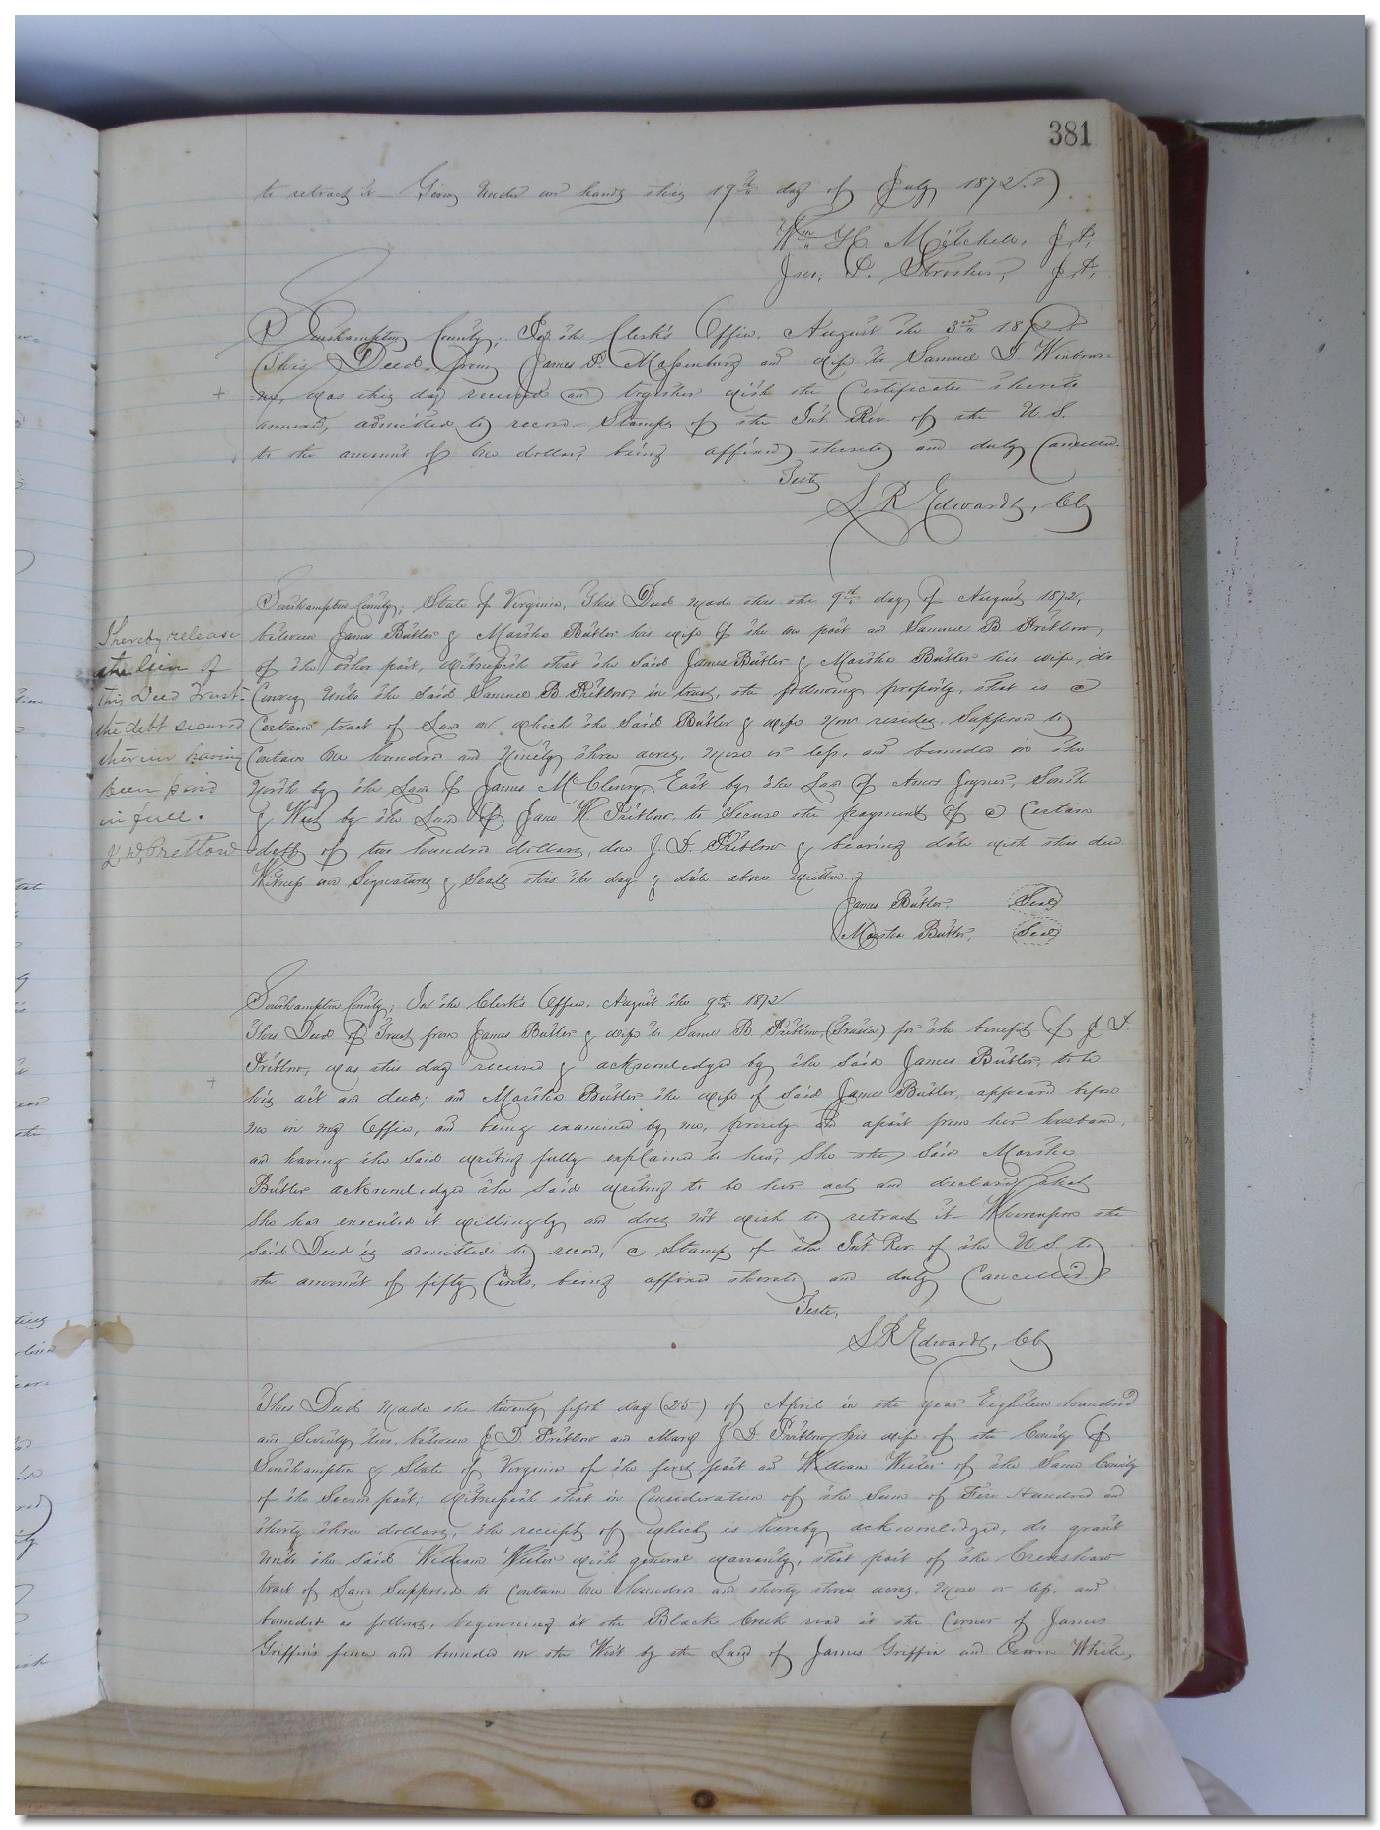 381
to retract it— Given under our hands this 19th day of July 1872.
Wm H Mitchell, J.P.
Jno. P. Thrasher, J.P.
Southampton County; In the Clerk's Office, August the 3rd 1872
This Deed from James P. Massenburg and wife to Samuel D. Winbourne
was this day received and together with the Certificate thereto
annexed, admitted to record. Stamps of the Int. Rev. of the U.S.
to the amount of dollars being affixed thereto and duly Cancelled.
Teste
L. R Edwards, Clk
Southampton County; State of Virginia, This Deed made this the 9th day of August 1872,
between James Butler & Martha Butler his wife of the one part and Samuel B. Pretlow,
of the other part, witnesseth that the said James Butler & Martha Butler his wife, do
Convey unto the said Samuel B. Pretlow in trust, the following property, that is a
Certain tract of Land on which the said Butler & wife now resides. Supposed to
Contain One hundred and ninety three acres, more or less, and bounded on the
North by the Land of James McCleny, East by the Land of Amos Joyner, South
& West by the Land of Jane W. Pretlow, to Secure the payment of a Certain
debt of two hundred dollars, due J. D. Pretlow & bearing date with this deed.
Witness our Signatures & Seals this the day & date above written.
James Butler. Seal
Martha Butler. Seal
I hereby release
the lien of
this Deed Trust
the debt secured
therein having
been paid
in full.
J. D. Pretlow
Southampton County; In the Clerk's Office, August the 9th 1872
This Deed of Trust from James Butler & wife to Saml B. Pretlow, (Trustee) for the benefit of J D.
Pretlow, was this day received & acknowledged by the said James Butler, to be
his act and deed; and Martha Butler the wife of said James Butler, appeared before
me in my Office, and being examined by me, privily and apart from her husband,
and having the said writing fully explained to her, She the said Martha
Butler acknowledged the said writing to be her act and declared that
She had executed it willingly and does not wish to retract it— Whereupon the
said Deed is admitted to record, a Stamp of the Int. Rev. of the U.S. to
the amount of fifty Cents, being affixed thereto and duly Cancelled
Teste,
L R Edwards, Clk
This Deed made the twenty fifth day (25) of April in the year Eighteen hundred
and Seventy two, between J D. Pretlow and Mary J D. Pretlow his wife of the County of
Southampton & State of Virginia of the first part and William Wester of the Same County
of the Second part; witnesseth that in Consideration of the Sum of Five Hundred and
thirty three dollars, the receipt of which is hereby acknowledged, do grant
unto the said William Wester with general warranty, that part of the Crenshaw
tract of Land Supposed to Contain One hundred and thirty three acres, more or less, and
bounded as follows, beginning at the Black Creek road at the Corner of James
Griffin's fence and bounded on the West by the Land of James Griffin and White,